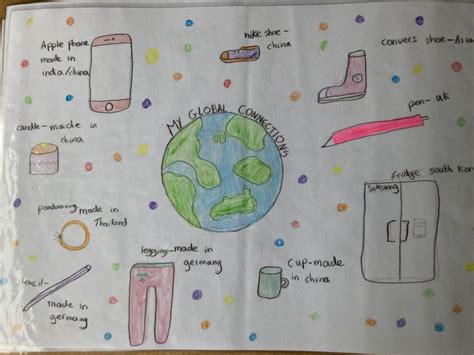 Apple phone
made in
india/china
nike shoe-
china
convers shoe-
MY GLOBAL CONNECTIONS
candle-made in
china
pen- uk
fridge- south
SAMSUNG
made in
Thailand
leggings-made in
germang
cup-made
in china
made in
germang